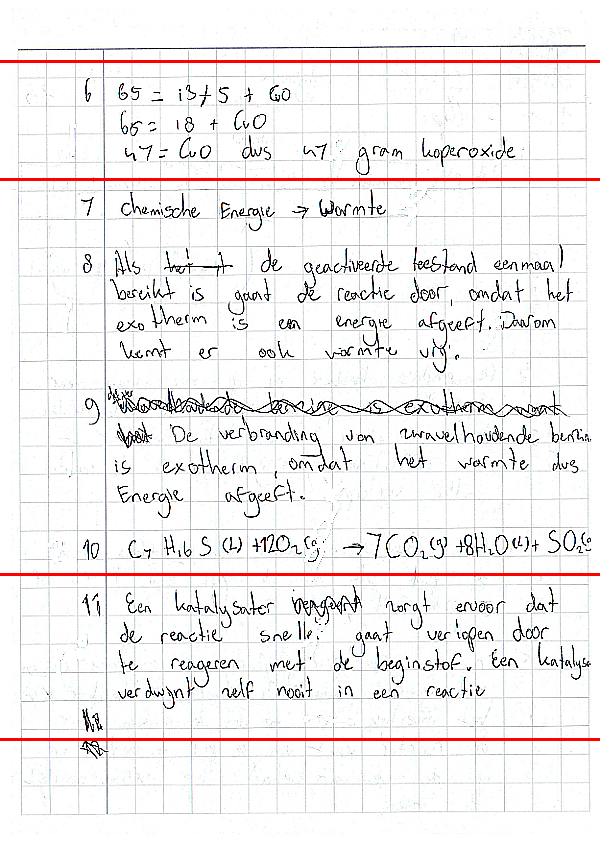 6 65 = 13+5 + CuO
65 = 18 + CuO
47 = CuO dus 47 gram koperoxide
7 Chemische Energie → Warmte
8 Als de geactiveerde toestand eenmaal
bereikt is gaat de reactie door, omdat het
exotherm is en energie afgeeft. Daarom
komt er ook warmte vrij.
9 zwavelhoudende benzine is exotherm want
De verbranding van zwavelhoudende benzin
is exotherm, omdat het warmte dus
Energie afgeeft.
10 C7 H16 S (l) +12O2 (g) → 7CO2 (g) +8H2O (l) + SO2 (g
11 Een katalysator zorgt ervoor dat
de reactie sneller gaat verlopen door
te reageren met de beginstof. Een katalysa
verdwijnt zelf nooit in een reactie
12